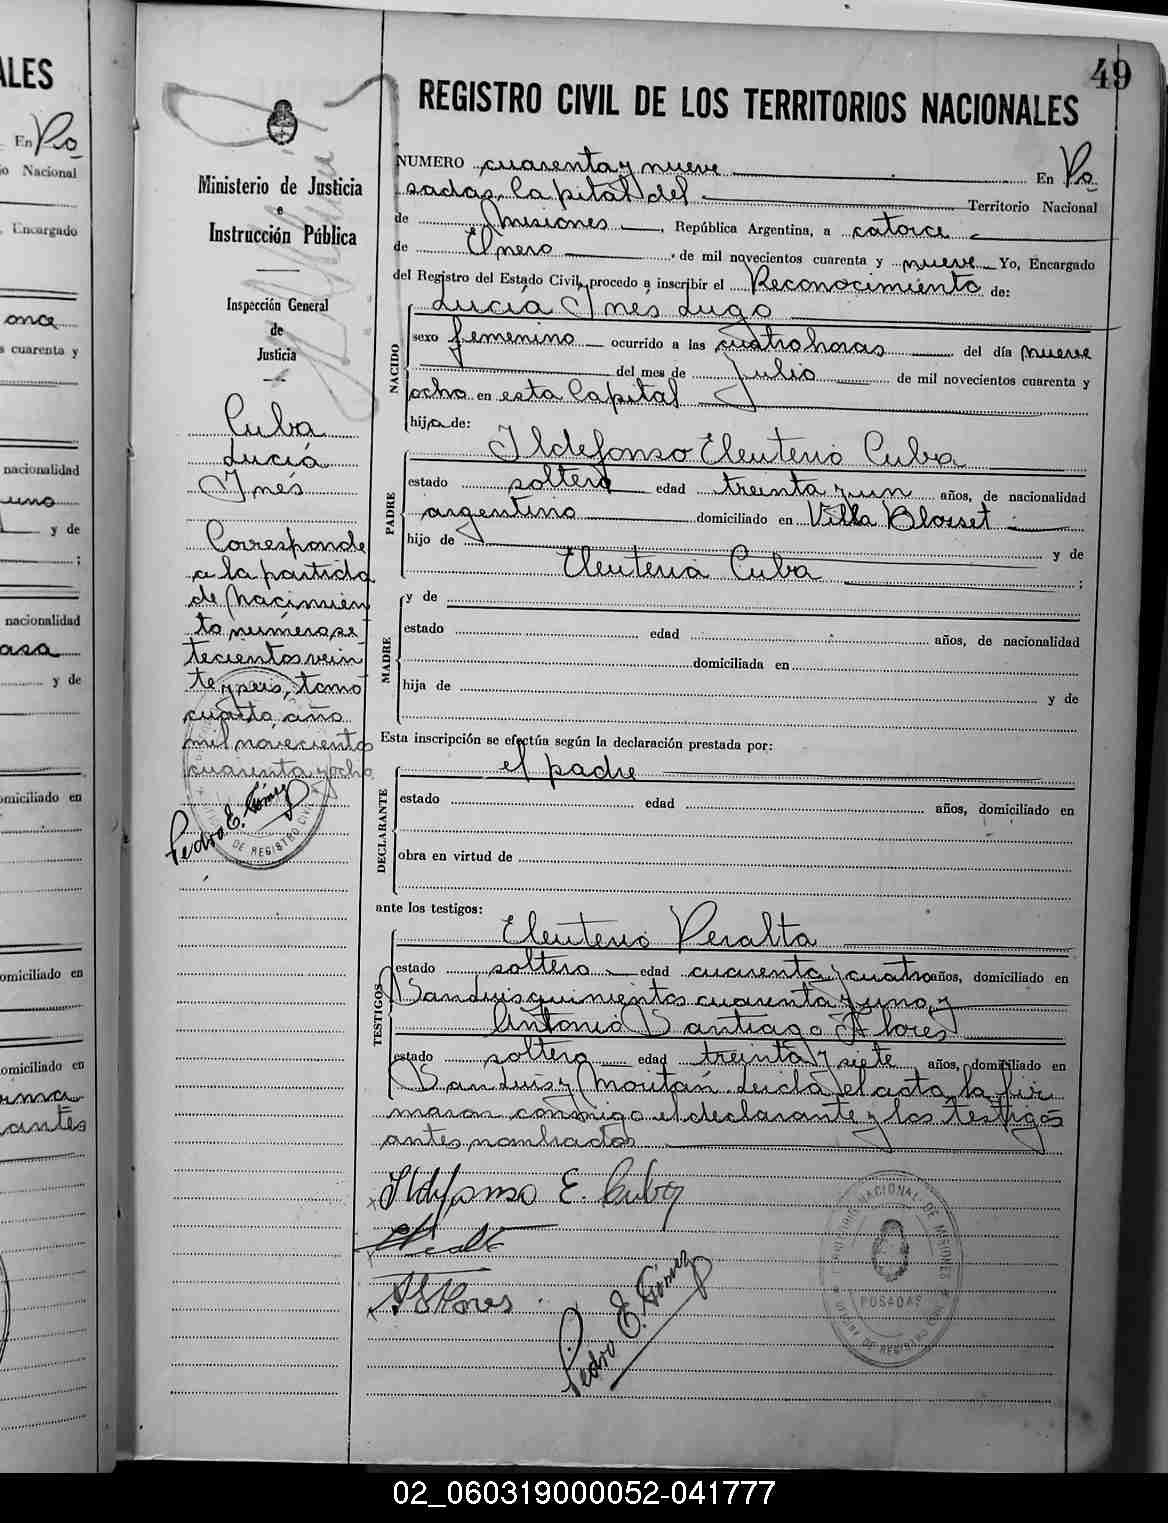 ALES
En Po
o Nacional
, Encargado
once
s cuarenta y
nacionalidad
uno
y de
;
nacionalidad
asa
y de
omiciliado en
omiciliado en
omiciliado en
antes
49
REGISTRO CIVIL DE LOS TERRITORIOS NACIONALES
Ministerio de Justicia
e
Instrucción Pública
Inspección General
de
Justicia
Cuba
Lucía
Inés
Corresponde
a la partida
de nacimien
to número se
tecientos vein
te y seis, tomo
cuarto, año
mil novecientos
cuarenta y ocho
Pedro E. Gómez
DE REGISTRO CIVIL
NUMERO cuarenta y nueve En Po
sadas, Capital del Territorio Nacional
de Misiones, República Argentina, a catorce
de Enero de mil novecientos cuarenta y nueve Yo, Encargado
del Registro del Estado Civil, procedo a inscribir el Reconocimiento de:
Lucía Inés Lugo
NACIDO
sexo femenino ocurrido a las cuatro horas del día nueve
del mes de Julio de mil novecientos cuarenta y
ocho en esta Capital
hija de:
Ildefonso Eleuterio Cuba
PADRE
estado soltero edad treinta y un años, de nacionalidad
argentino domiciliado en Villa Blosset
hijo de y de
Eleuteria Cuba ;
MADRE
y de
estado edad años, de nacionalidad
domiciliada en
hija de y de
Esta inscripción se efectúa según la declaración prestada por:
el padre
DECLARANTE
estado edad años, domiciliado en
obra en virtud de
ante los testigos:
Eleuterio Peralta
TESTIGOS
estado soltero edad cuarenta y cuatro años, domiciliado en
San Luis quinientos cuarenta y uno, y
Antonio Santiago Flores
estado soltero edad treinta y siete años, domiciliado en
San Luis y Moritán. Leída el acta, la fir
maron conmigo el declarante y los testigos
antes nombrados
Ildefonso E. Cuba
A S Flores
Pedro E. Gómez
NACIONAL DE MISIONES
POSADAS
OFICINA DE REGISTRO CIVIL
02_060319000052-041777